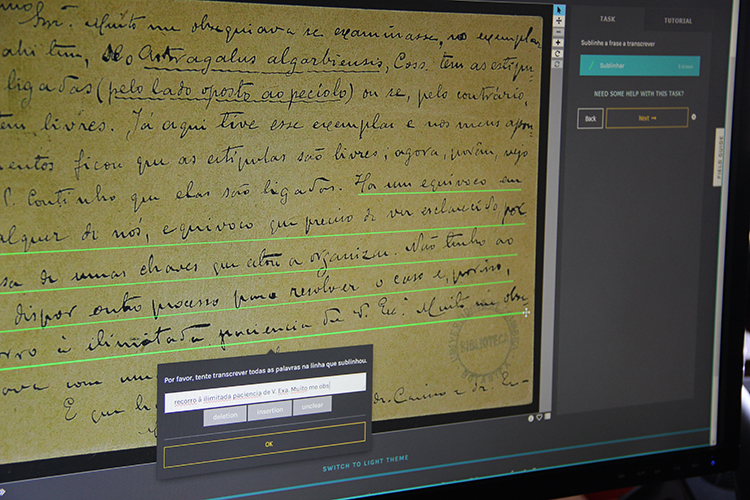 Snrª. Muito me obsequiava se examinasse, no exemplar
ahi tem, se o Astragalus algarbiensis, Coss. tem as estípu
ligadas (pelo lado oposto ao pecíolo) ou se, pelo contrário,
tem livres. Já aqui tive esse exemplar e nos meus apon
mentos ficou que as estípulas são livres; agora, porém, vejo
P. Coutinho que elas são ligadas. Há um equívoco em
alquer de nós, equívoco que preciso de ver esclarecido por
sa de umas chaves que estou a organizar. Não tenho ao
dispor outro processo para resolver o caso e, por isso,
orro à ilimitada paciencia de V. Exª. Muito me obse
com um
E que
de Coimbra
BIBLIOTECA
Por favor, tente transcrever todas as palavras na linha que sublinhou.
recorro à ilimitada paciencia de V. Exa. Muito me obs
deletion insertion unclear
OK
SWITCH TO LIGHT THEME
TASK TUTORIAL
Sublinhe a frase a transcrever
Sublinhar
NEED SOME HELP WITH THIS TASK?
Back Next
FIELD GUIDE